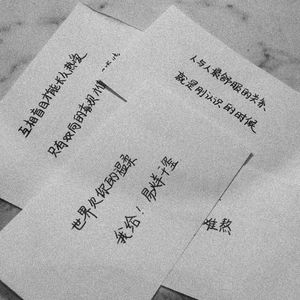 互相盲目才能长久热爱
只有双向的
人与人最舒服的关系
就是刚认识的时候
世界欠你的温柔
我给！易烊千玺
难熬